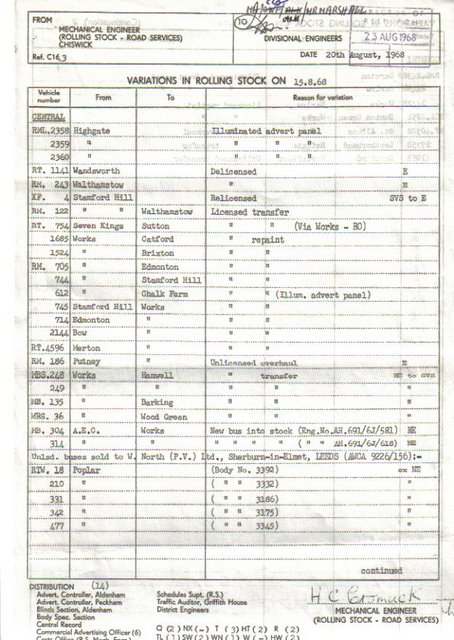 FROM
MECHANICAL ENGINEER
(ROLLING STOCK - ROAD SERVICES)
CHISWICK
Ref. C16,3
TO
DIVISIONAL ENGINEERS
23 AUG 1968
DATE 20th August, 1968
VARIATIONS IN ROLLING STOCK ON 15.8.68
Vehicle number From To Reason for variation
CENTRAL
RML.2358 Highgate Illuminated advert panel
2359 " " " "
2360 " " " "
RT. 1141 Wandsworth Delicensed E
RM. 243 Walthamstow " E
XF. 4 Stamford Hill Relicensed SVS to E
RM. 122 " " Walthamstow Licensed transfer
RT. 754 Seven Kings Sutton " " (Via Works - BO)
1685 Works Catford " repaint
1524 " Brixton " "
RM. 705 " Edmonton " "
744 " Stamford Hill " "
612 " Chalk Farm " " (Illum. advert panel)
745 Stamford Hill Works " "
714 Edmonton " " "
2144 Bow " " "
RT.4596 Merton " " "
RM. 186 Putney Unlicensed overhaul E
MBS.248 Works Hanwell " transfer NE to SVS
249 " " " " "
MB. 135 " Barking " " "
MBS. 36 " Wood Green " " "
MB. 304 A.E.C. Works New bus into stock (Eng.No.AH.691/6J/581) NE
314 " " " " " " ( " " AH.691/6J/618) NE
Unlsd. buses sold to W. North (P.V.) Ltd., Sherburn-in-Elmet, LEEDS (AWCA 9226/156):-
RTW. 18 Poplar (Body No. 3392) ex NE
210 " ( " " 3332) "
331 " ( " " 3186) "
342 " ( " " 3175) "
477 " ( " " 3345) "
continued
DISTRIBUTION (14)
Advert. Controller, Aldenham
Advert. Controller, Peckham
Blinds Section, Aldenham
Body Spec. Section
Central Record
Commercial Advertising Officer (6)
Schedules Supt. (R.S.)
Traffic Auditor, Griffith House
District Engineers
MECHANICAL ENGINEER
(ROLLING STOCK - ROAD SERVICES)